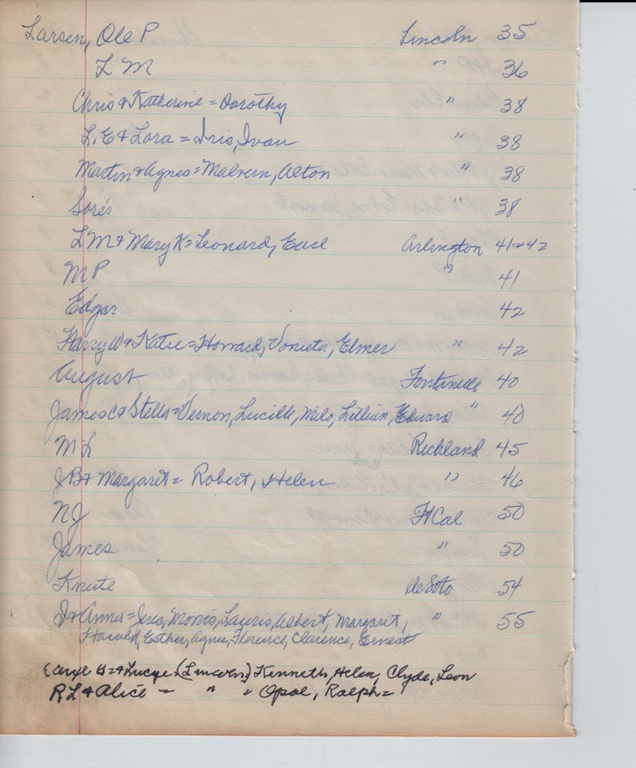 Larsen, Ole P Lincoln 35
L M " 36
Chris & Katherine = Dorothy " 38
L. E & Lora = Iris, Ivan " 38
Martin & Agnes = Malvin, Alton " 38
38
L M & Mary K = Leonard, Earl Arlington 41 & 42
M P " 41
Edgar 42
Harry W & Katie = Howard, Vonieta, Elmer " 42
August Fontanelle 40
James C & Stella = Vernon, Lucille, Milo, Lillian, Edward " 40
M L Richland 45
J B & Margaret = Robert, Helen " 46
N J Ft Cal 50
James " 50
Knute De Soto 54
& Anna = Morris, Lauris, Albert, Margaret, " 55
Harold, Esther, Agnes, Florence, Clarence, Ernest
(Lincoln) Kenneth, Helen, Clyde, Leon
R L & Alice - " = Opal, Ralph =